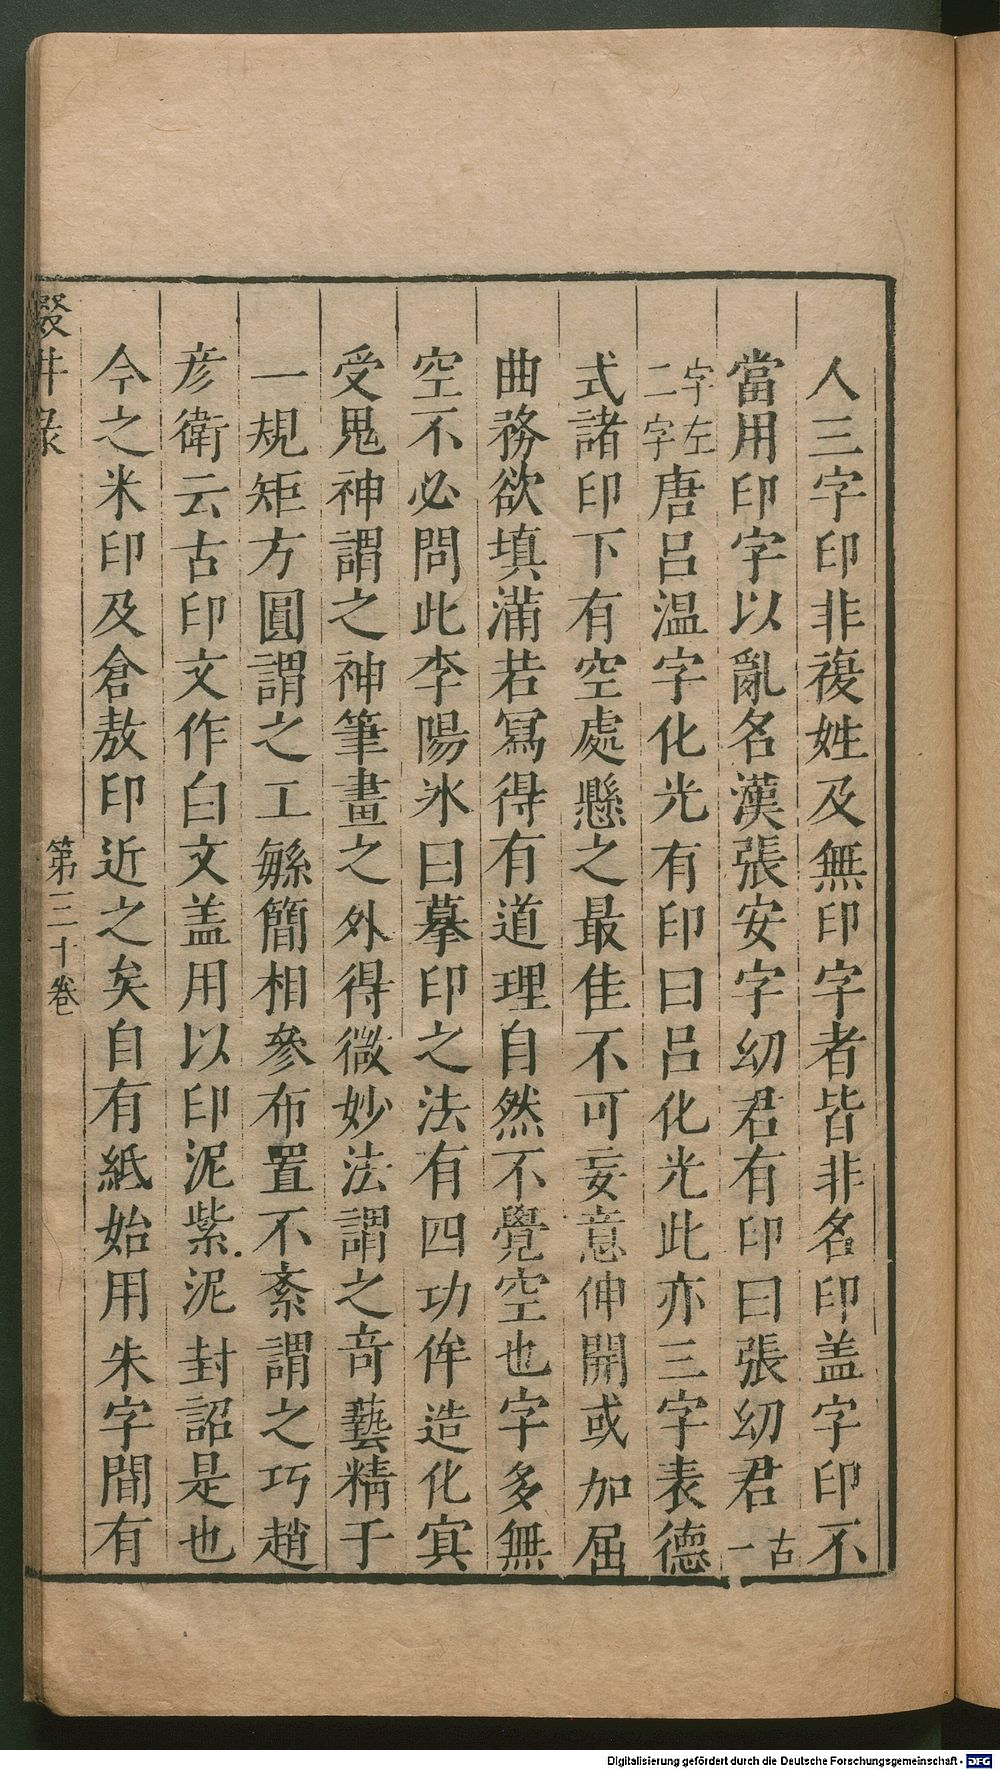 人三字印非複姓及無印字者皆非名印盖字印不
當用印字以亂名漢張安字幼君有印曰張幼君古一
字左二字唐吕温字化光有印曰吕化光此亦三字表德
式諸印下有空處懸之最佳不可妄意伸開或加屈
曲務欲填滿若冩得有道理自然不覺空也字多無
空不必問此李陽氷曰摹印之法有四功侔造化㝠
受鬼神謂之神筆畫之外得微妙法謂之奇藝精于
一規矩方圓謂之工緐簡相參布置不紊謂之巧趙
彥衛云古印文作白文盖用以印泥紫泥封詔是也
今之米印及倉敖印近之矣自有紙始用朱字間有
輟耕錄
第三十卷
Digitalisierung gefördert durch die Deutsche Forschungsgemeinschaft - DFG